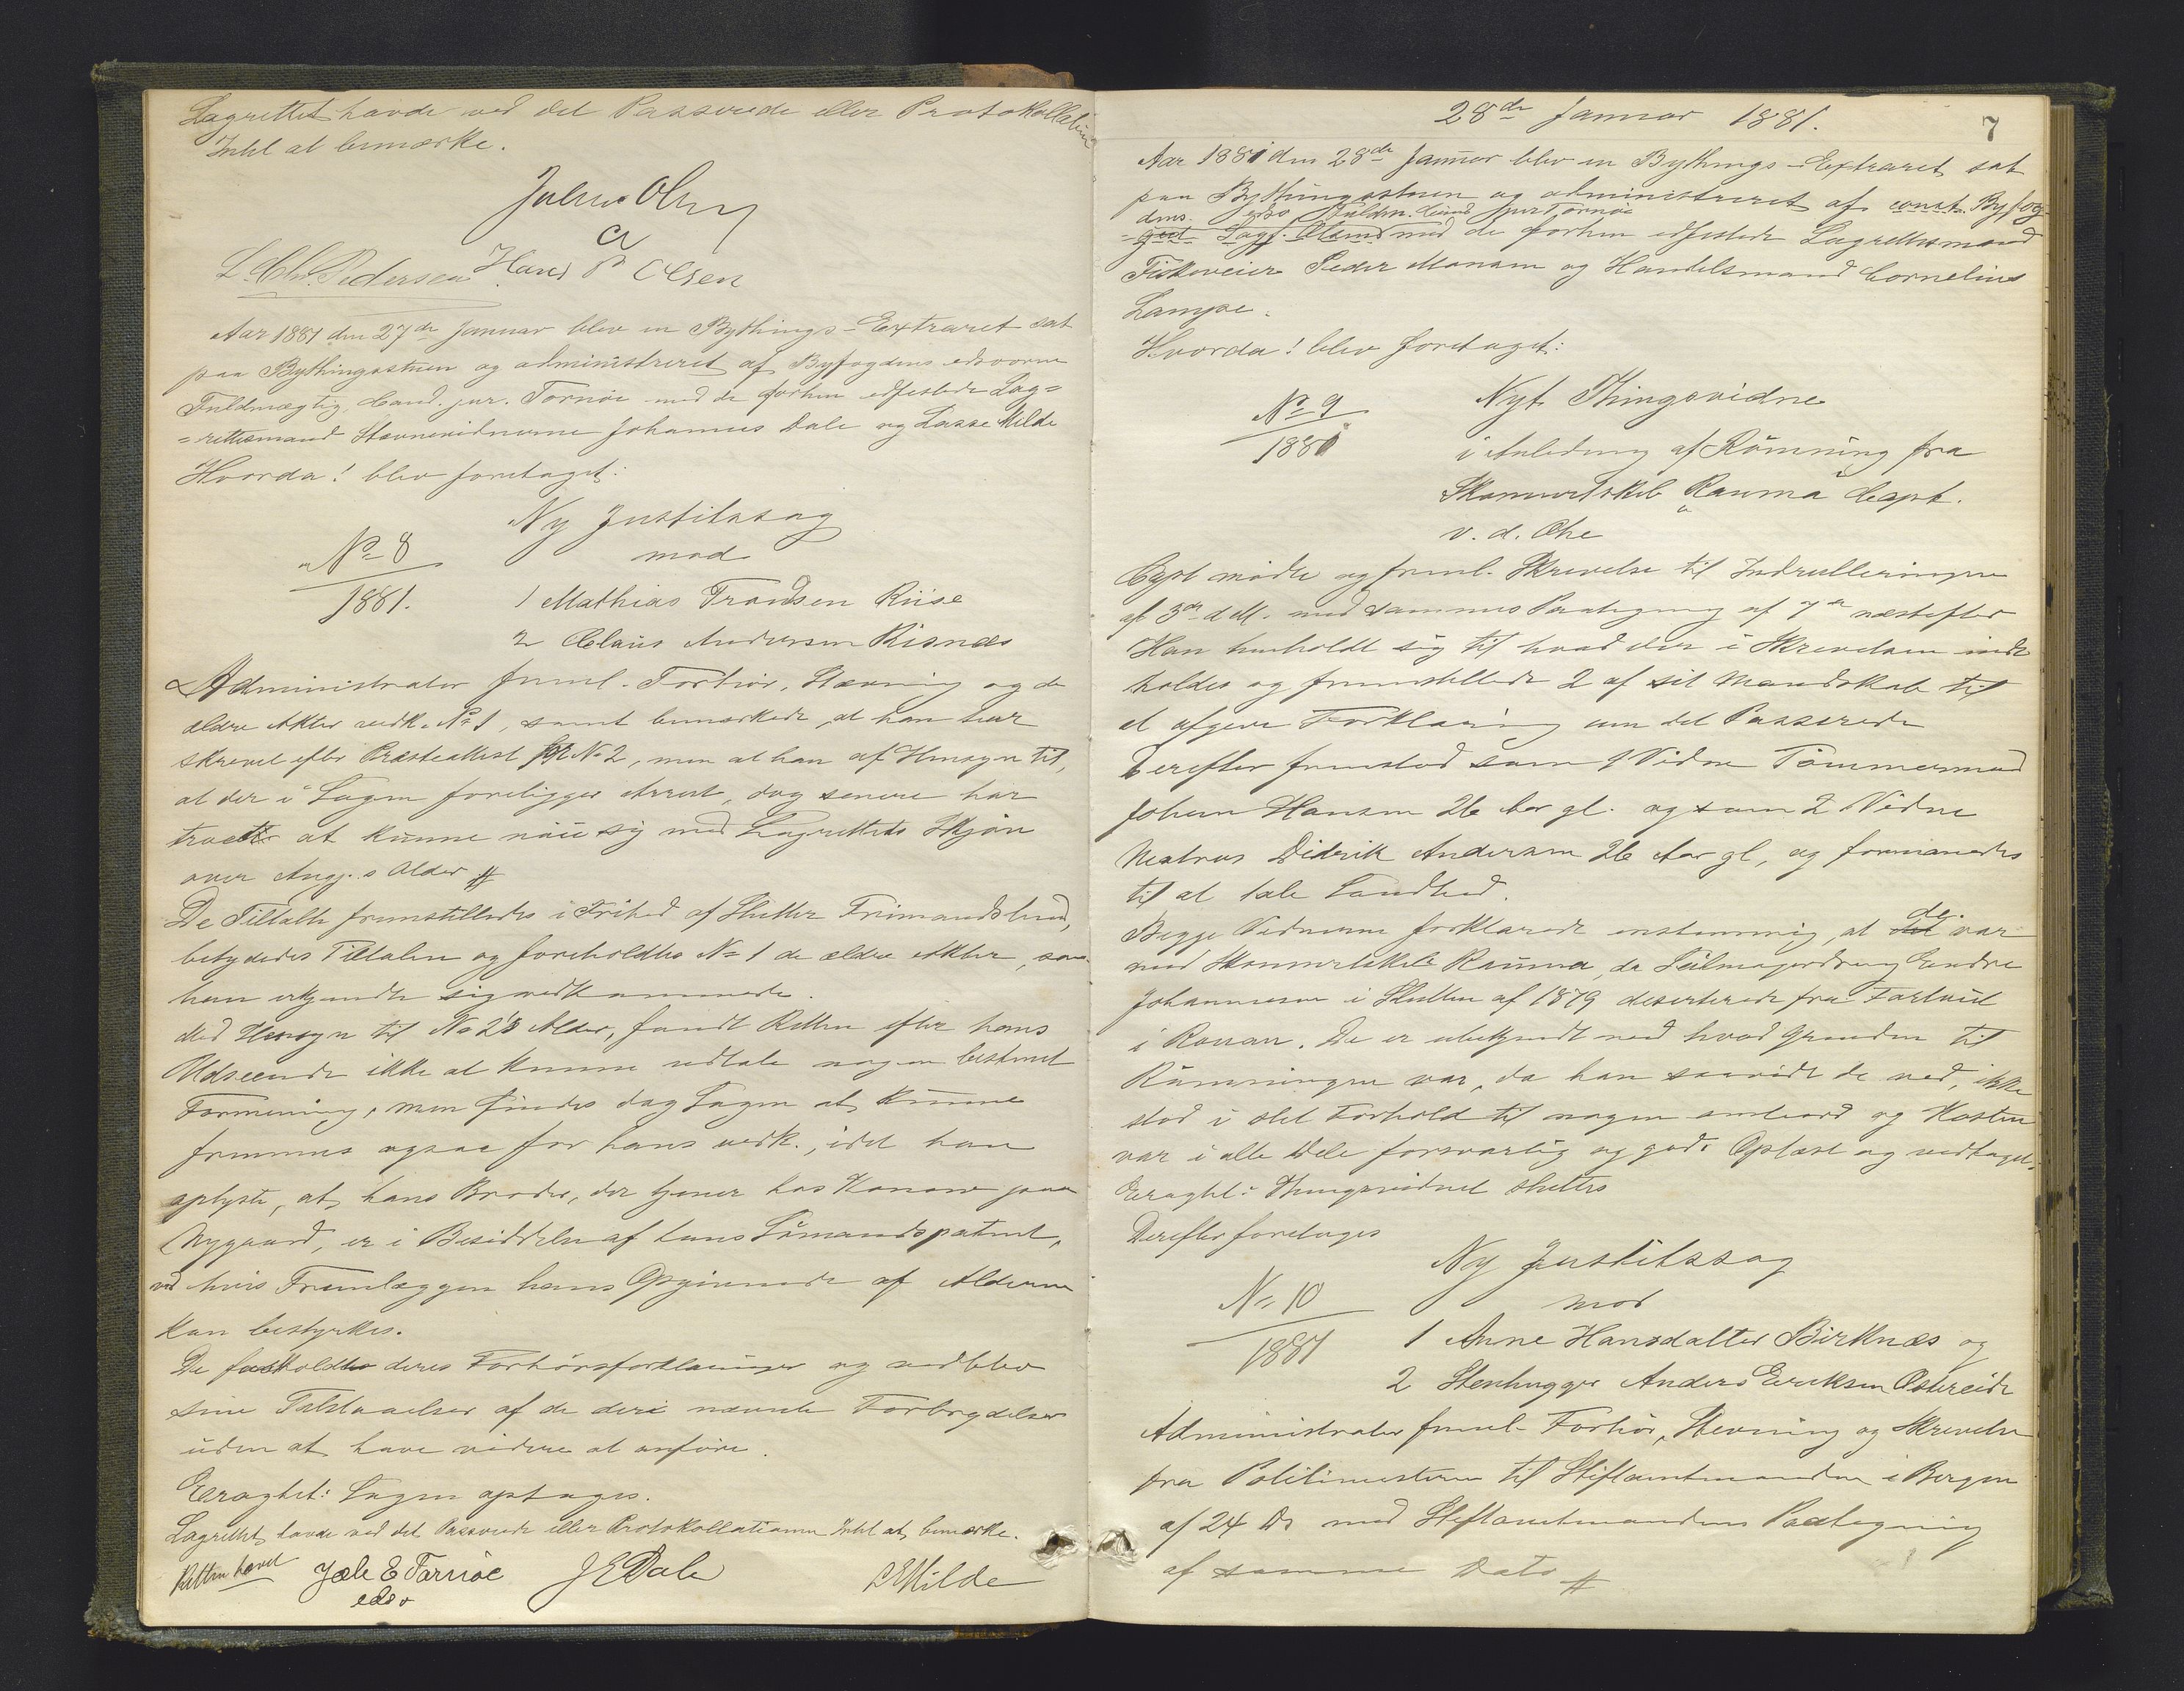 Lagrettet havde ved det Passerede eller Protokollationen
Intet at bemærke.
Julius Olsen
a
L. Chr. Pedersen Hans P Olsen
Aar 1881 den 27de Januar blev en Bythings-Extraret sat
paa Bythingsstuen og administreret af Byfogdens edsvorne
Fuldmægtig, Cand. jur. Tornöe med de forhen edfæstede Lag=
=rettesmænd Stævnevidnerne Johannes Dale og Lasse Milde
Hvorda! blev foretaget:
Ny Justitssag
No 8
mod
1881.
1 Mathias Trondsen Riise
2 Claus Andersen Risnæs
Administrator freml. Forhör, Stævning og de
ældre Akter vedk. No 1, samt bemærkede, at han har
skrevet efter Præsteattest for No 2, men at han af Hensyn til,
at der i Sagen foreligger Arrest, dog senere har
troet at kunne nöie sig med Lagrettets Skjön
over Angj.s Alder #
De Tiltalte fremstilledes i Frihed af Slutter Frimandslund,
betydedes Tiltalen og foreholdtes No 1 de ældre Akter, som
han erkjendte sig vedkommende.
Med Hensyn til No 2's Alder, fandt Retten efter hans
Udseende ikke at kunne udtale nogen bestemt
Formening, men findes dog Sagen at kunne
fremmes ogsaa for hans vedk., idet han
oplyste, at hans Broder, der tjener hos Konow paa
Nygaard, er i Besiddelse af hans Sömandspatent,
ved hvis Fremlæggen hans Opgivende af Alderen
kan bestyrkes.
De foreholdtes deres Forhörsforklaringer og vedblev
sine Tilstaaelser af de deri nævnte Forbrydelser
uden at have videre at anföre.
Eragtet: Sagen optages.
Lagrettet havde ved det Passerede eller Protokollationen Intet at bemærke.
Retten hævet Joh E Tornöe J E Dale L E Milde
edsv
28de Januar 1881.
7
Aar 1881 den 28de Januar blev en Bythings-Extraret sat
paa Bythingsstuen og administreret af const. Byfog-
dens edsv Fuldm. Cand jur Tornöe
-ged Sagf. Olsen med de forhen edfæstede Lagrettesmænd
Fiskeveier Peder Monsen og Handelsmand Cornelius
Lampe.
Hvorda! blev foretaget:
No 9
1881
Nyt Thingsvidne
i Anledning af Römning fra
Skonnertskib "Rauma" Capt.
v. d. Ohe
Capt mödte og freml. Skrivelse til Indrulleringen
af 3de d. M. med sammes Paategning af 7de næstefter
Han henholdt sig til hvad der i Skrivelsen inde
holdes og fremstillede 2 af sit Mandskab til
at afgive Forklaring om det Passerede
Derefter fremstod som 1 Vidne Tömmermand
Johan Hansen 26 Aar gl. og som 2 Vidne
Matros Didrik Andersen 26 Aar gl, og formanedes
til at tale Sandhed.
Begge Vidnerne forklarede enstemmig, at det de var
med Skonnertskib Rauma, da Seilmagerdreng Endre
Johannesen i Slutten af 1879 deserterede fra Fartöiet
i Rouen. De er ubekjendt med hvad Grunden til
Römningen var, da han saavidt de ved, ikke
stod i slet Forhold til nogen ombord og Kosten
var i alle Dele forsvarlig og god. Oplæst og vedtaget.
Eragtet: Thingsvidnet sluttes
Derefter foretages
Ny Justitssag
No 10
mod
1881
1 Anne Hansdatter Birknæs og
2 Stenhugger Anders Eriksen Östereide
Administrator freml. Forhör, Stevning og Skrivelse
fra Politimesteren til Stiftamtmanden i Bergen
af 24 Ds med Stiftamtmandens Paategning
af samme Dato #